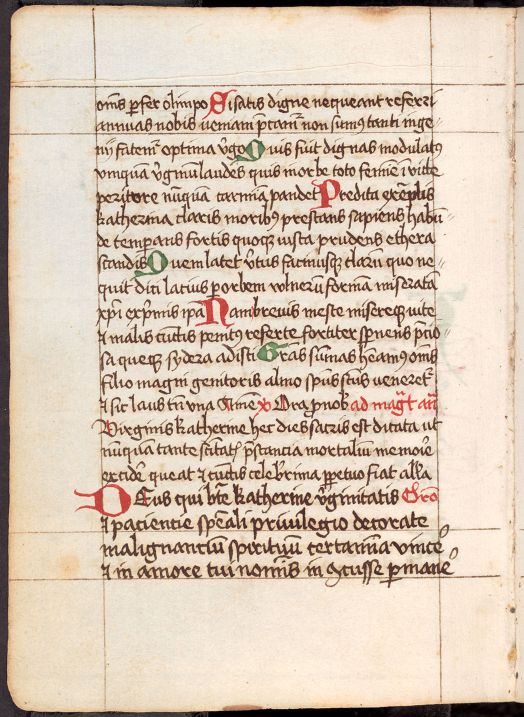 om̄s ꝑfer olimpo Si satis digne nequeant referri
annuas nobis ueniam p̄camur non sumꝰ tanti inge
nij fatemur optima v̄go Quis fuit dignas modulatꝰ
vmquā v̄gīnū laudes quis morbe toto femīe
peritore nūquā carmīa pandet Predita exēplis
katherina claris moribꝰ prestans sapiens habū
de temperans fortis quoqꝫ iusta prudens ethera
scandis Quem latet v̄tus facinusqꝫ clarū quo ne
quit dici latius ꝑ orbem volnerū forma miserata
xp̄i exp̄mis ip̄a Nam breuis meste misereqꝫ uite
⁊ malis cūctis penitꝰ referte fortiter sp̄nens p̄cio
sa queqꝫ sydera adisti Gras sūmas heamꝰ om̄s
filio magni genitoris almo sp̄us sc̄us veneretur
⁊ sic laus tri vna Amē Ora pro nob ad maḡt an̄
Virginis katherine hec dies sacris est dicata ut
nūquam tante sc̄itatꝭ p̄stancia mortaliū memorie
excidere queat ⁊ cunctis celeberrima ꝑpetuo fiat all̄a
DEus qui bt̄e katherine v̄ginitatis Oro
⁊ paciencie sp̄eali priuilegio decorate
malignanciū spirituū certamīa vincere
⁊ in amore tui nominis in ꝯcusse ꝑmane